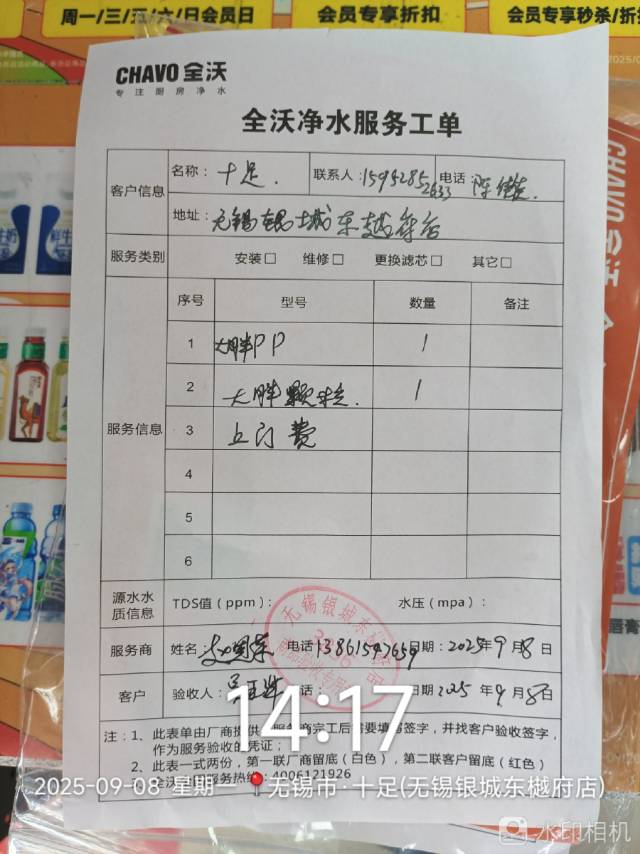 周一/三/五/六/日会员日
会员专享折扣
会员专享秒杀/折
CHAVO 全沃
专注厨房净水
全沃净水服务工单
客户信息
名称: 十足.
联系人: 159952852633
电话
地址: 无锡银城东樾府店
服务类别
安装□ 维修□ 更换滤芯□ 其它□
服务信息
序号 型号 数量 备注
1 大胖PP 1
2 大胖颗粒. 1
3 上门费
4
5
6
源水水质信息
TDS值（ppm）: 水压（mpa）:
服务商 姓名: 电话: 13861597659 日期: 2025年9月8日
客户 验收人: 日期: 2025年9月8日
无锡银城东
注: 1、此表单由厂商提供,服务商完工后需要填写签字，并找客户验收签字，
作为服务验收的凭证；
2、此表一式两份，第一联厂商留底（白色），第二联客户留底（红色）
3、全沃 服务热线: 4006121926
CHAVO 全沃
14:17
2025-09-08 星期一 无锡市·十足(无锡银城东樾府店)
水印相机